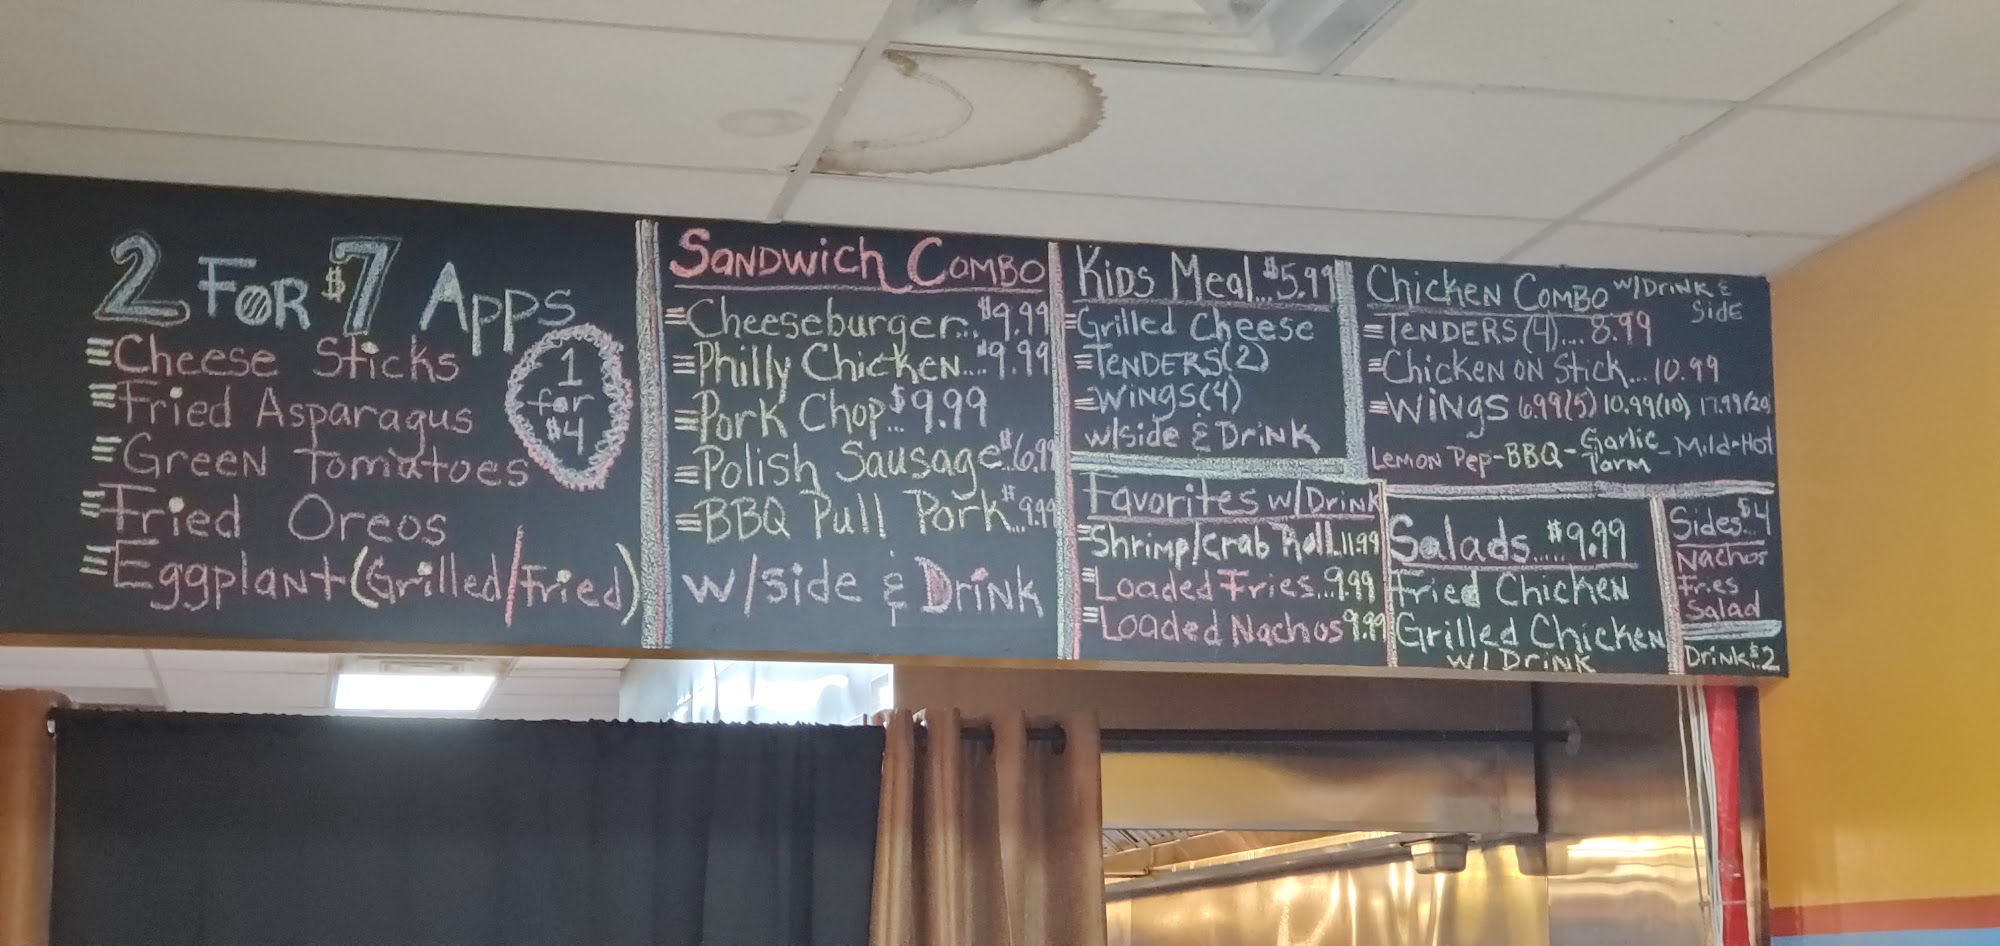 2 For $7 Apps
Cheese Sticks
Fried Asparagus
Green Tomatoes
Fried Oreos
Eggplant (Grilled/Fried)
1
for
$4
Sandwich Combo
Cheeseburger... $9.99
Philly Chicken.... $9.99
Pork Chop... $9.99
Polish Sausage... $6.99
BBQ Pull Pork... $9.99
w/side & Drink
Kids Meal... $5.99
Grilled Cheese
Tenders(2)
Wings(4)
w/side & Drink
Favorites w/Drink
Shrimp/Crab Roll..11.99
Loaded Fries...9.99
Loaded Nachos 9.99
Chicken Combo w/Drink &
Side
Tenders(4).... 8.99
Chicken on Stick... 10.99
Wings 6.99(5) 10.99(10) 17.99(20)
Lemon Pep-BBQ-Garlic Parm-Mild-Hot
Salads..... $9.99
Fried Chicken
Grilled Chicken
w/Drink
Sides.. $4
Nachos
Fries
Salad
Drink.. $2